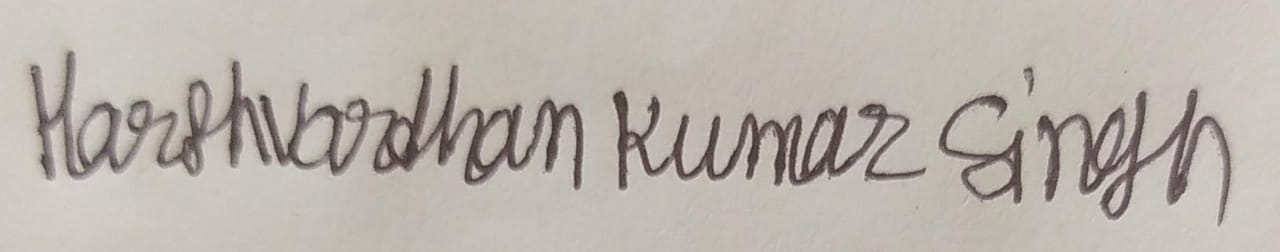 Harshvardhan Kumar Singh